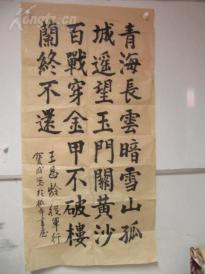 青海長雲暗雪山孤
城遥望玉門關黄沙
百戰穿金甲不破樓
蘭終不還
王昌龄從軍行